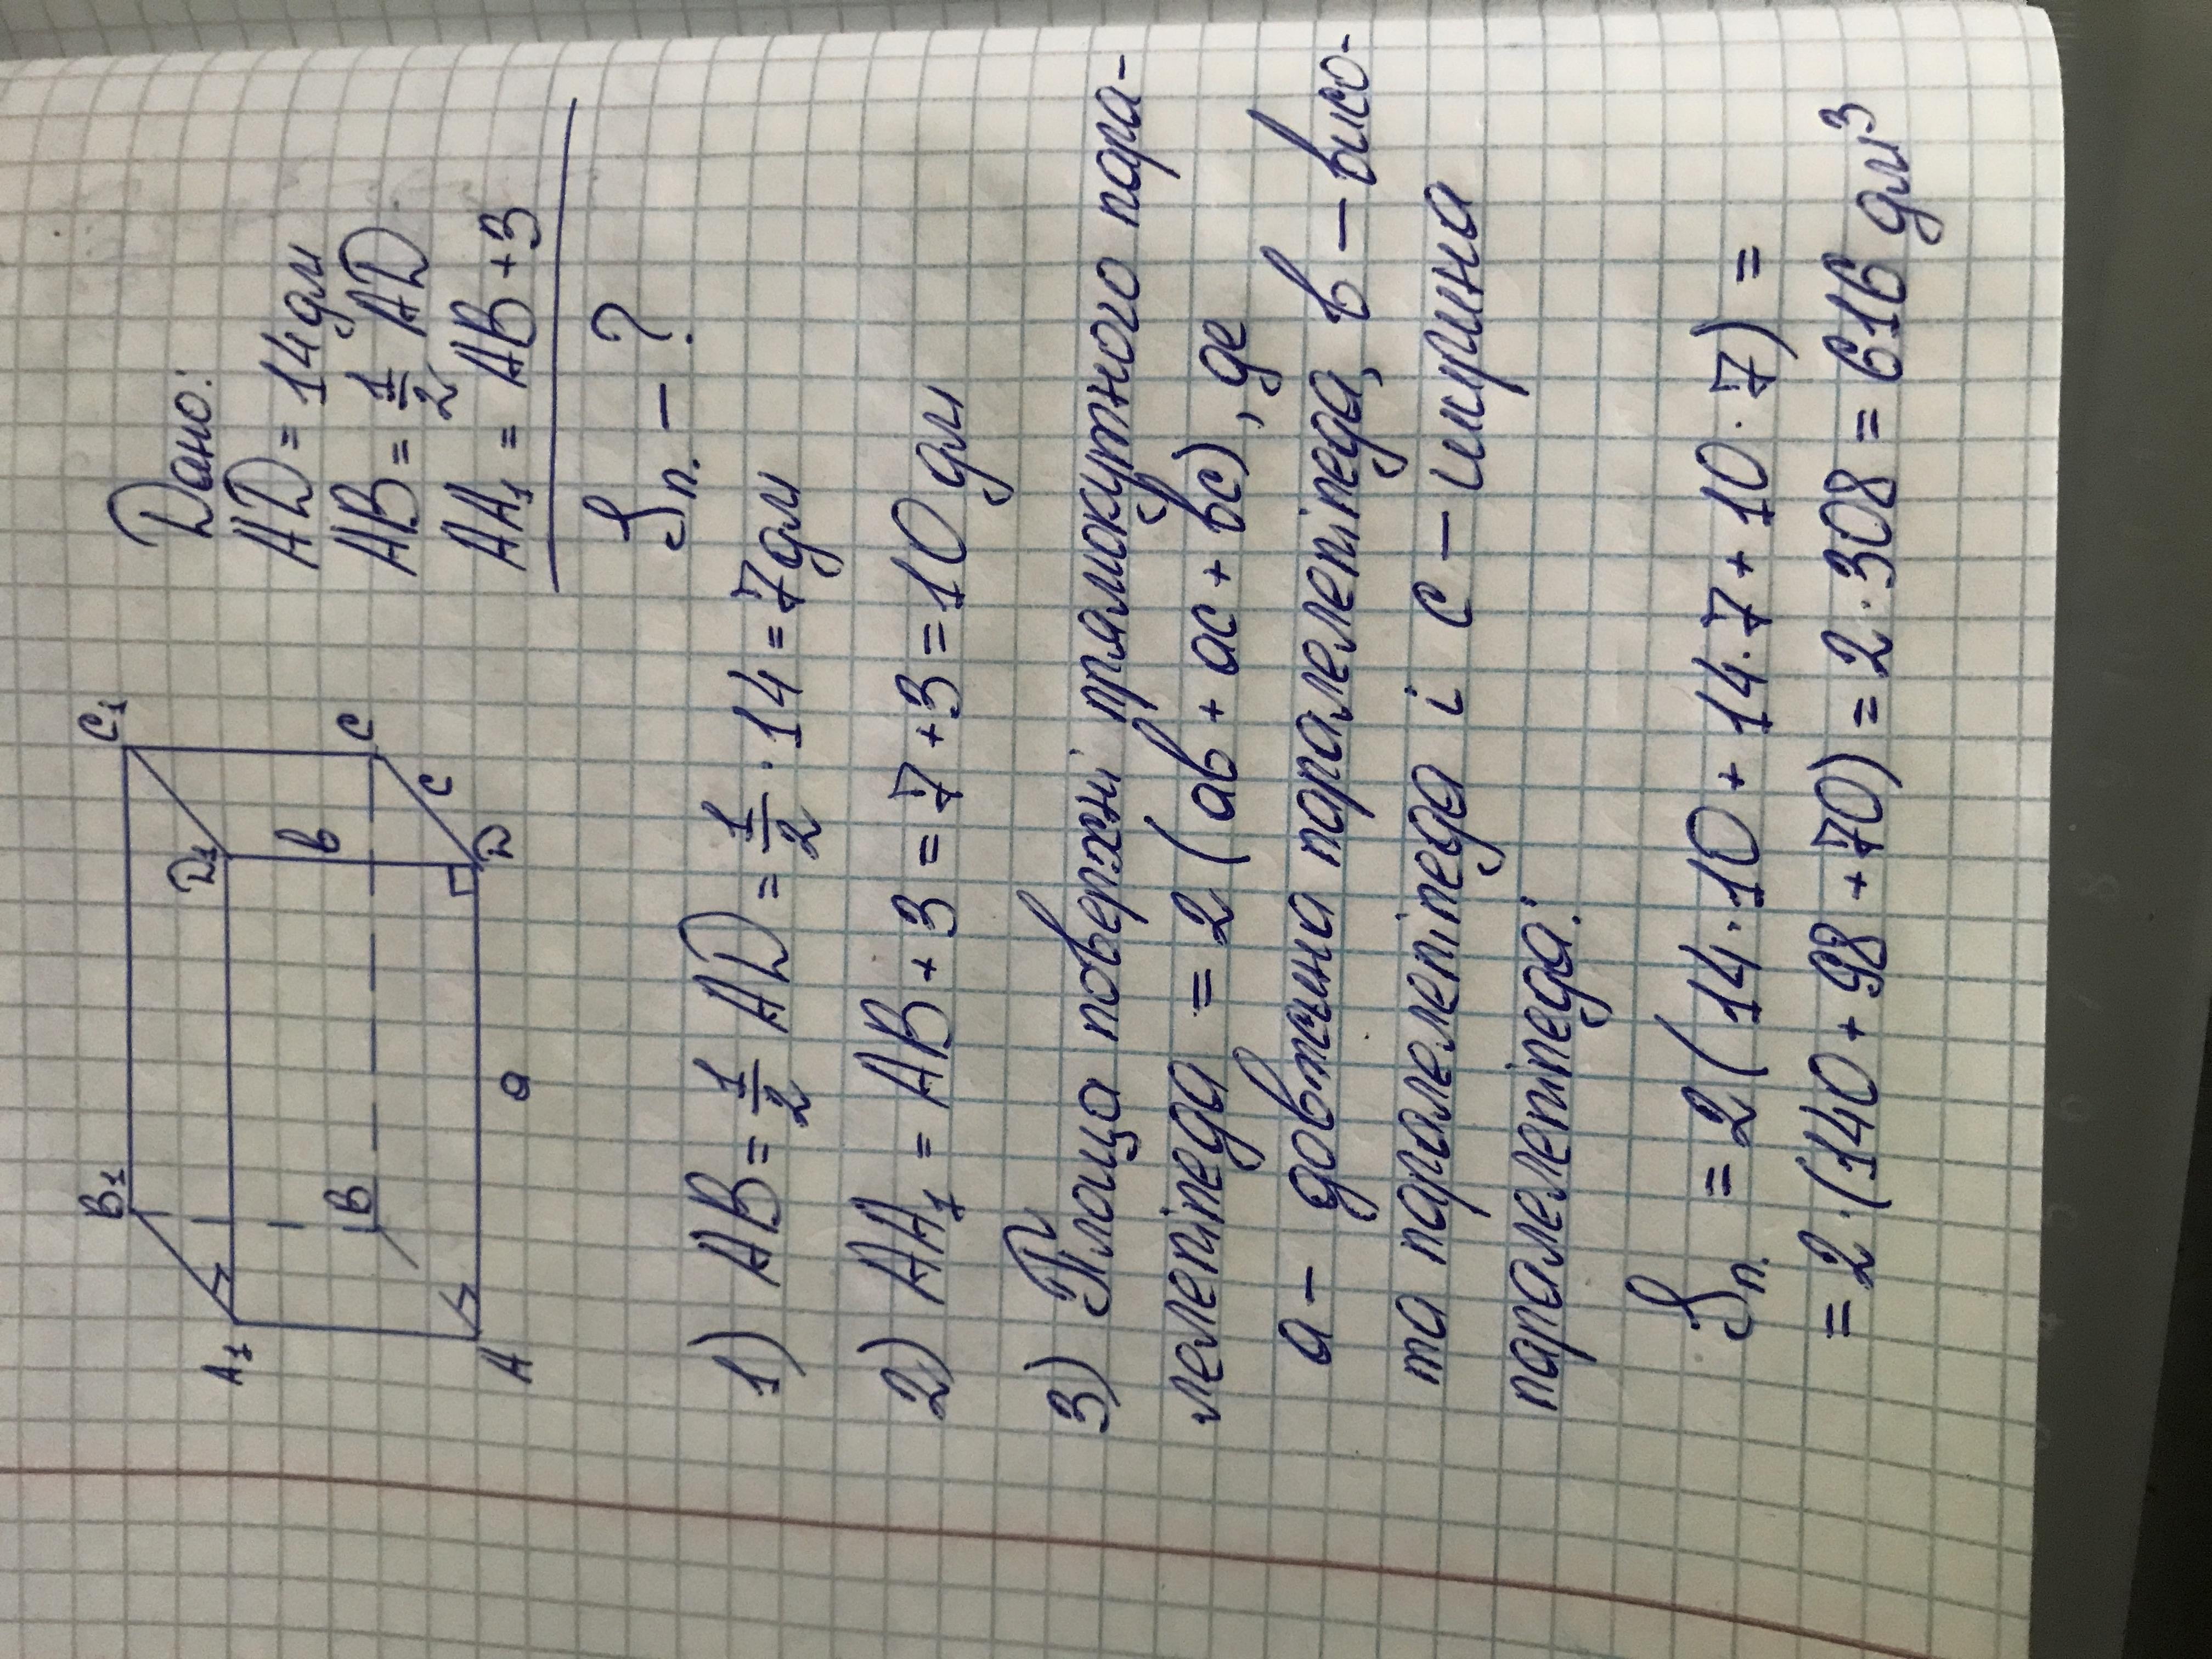 B₁ C₁
A₁ D₁
в
B C
c
A D
a
Дано:
AD = 14 дм
AB = 1/2 AD
AA₁ = AB + 3
Sп. - ?
1) AB = 1/2 AD = 1/2 · 14 = 7 дм
2) AA₁ = AB + 3 = 7 + 3 = 10 дм
3) Площа поверхні прямокутного пара-
лелепіпеда = 2 (ав + ас + вс), де
а - довжина паралелепіпеда, в - висо-
та паралелепіпеда і с - ширина
паралелепіпеда:
Sп. = 2 (14 · 10 + 14 · 7 + 10 · 7) =
= 2 · (140 + 98 + 70) = 2 · 308 = 616 дм³